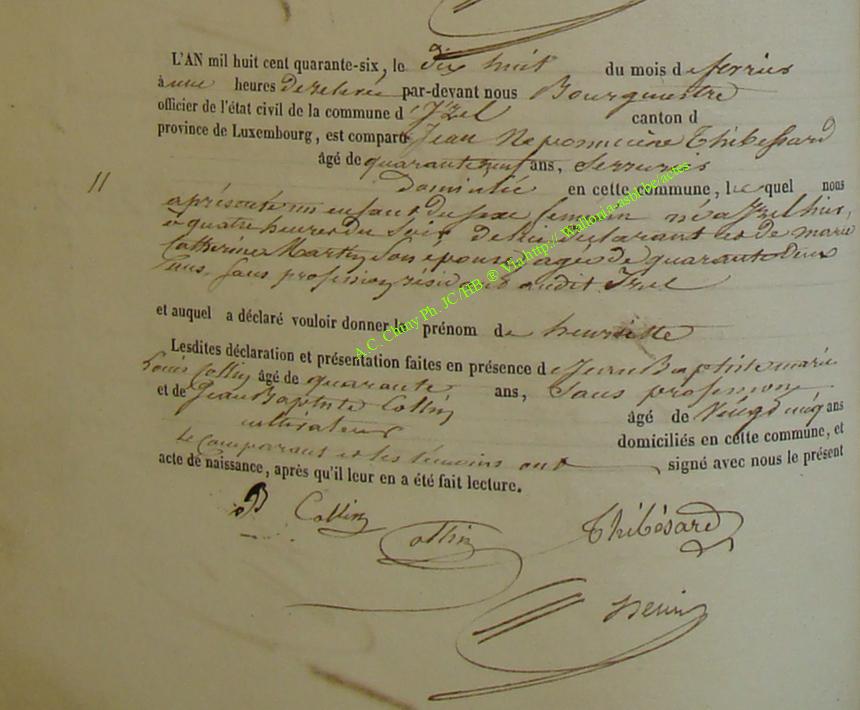 L'AN mil huit cent quarante-six, le dix huit du mois de ferrier
à une heures de relevée par-devant nous Bourgmestre
officier de l'état civil de la commune d'Izel canton d
province de Luxembourg, est comparu Jean Nepomucène Thibessard
âgé de quarante neuf ans, serrurier
11 domicilié en cette commune, lequel nous
a présenté un enfant du sexe féminin né a Izel hier,
à quatre heures du soir de lui déclarant et de marie
Catherine Martin son épouse agée de quarante deux
ans, sans profession, résidant audit Izel
et auquel a déclaré vouloir donner le prénom de henriette
Lesdites déclaration et présentation faites en présence de Jean Baptiste marie
Louis Collin âgé de quarante ans, sans profession
et de Jean Baptiste Collin âgé de vingt cinq ans
cultivateur domiciliés en cette commune, et
le comparant et les témoins ont signé avec nous le présent
acte de naissance, après qu'il leur en a été fait lecture.
Collin Collin Thibésard
A.C. Chiny Ph. JC/HB. ® Via http://Wallonia-asbl.be/actes